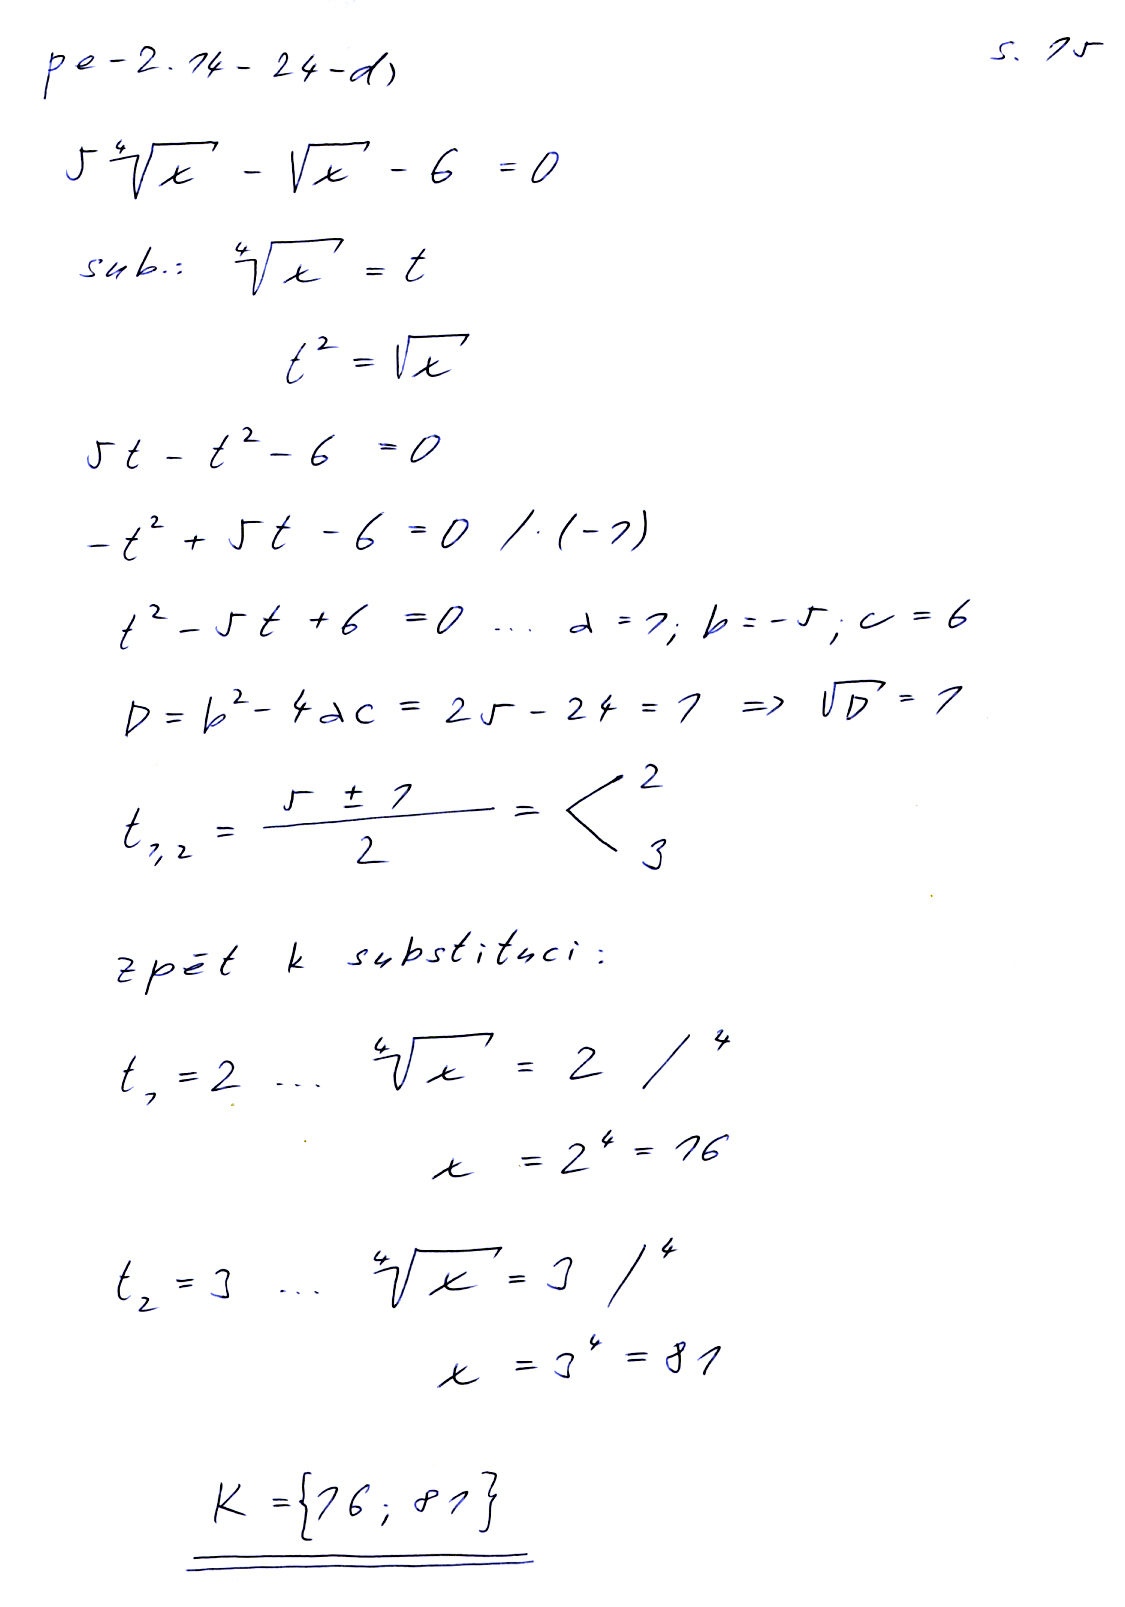 pe-2.14-24-d)
s. 15
5∜x - √x - 6 = 0
sub.: ∜x = t
t² = √x
5t - t² - 6 = 0
-t² + 5t - 6 = 0 /·(-1)
t² - 5t + 6 = 0 ... a = 1; b = -5; c = 6
D = b² - 4ac = 25 - 24 = 1 => √D = 1
t₁,₂ = (5 ± 1)/2 = < 2
3
zpět k substituci:
t₁ = 2 ... ∜x = 2 /⁴
x = 2⁴ = 16
t₂ = 3 ... ∜x = 3 /⁴
x = 3⁴ = 81
K = {16; 81}